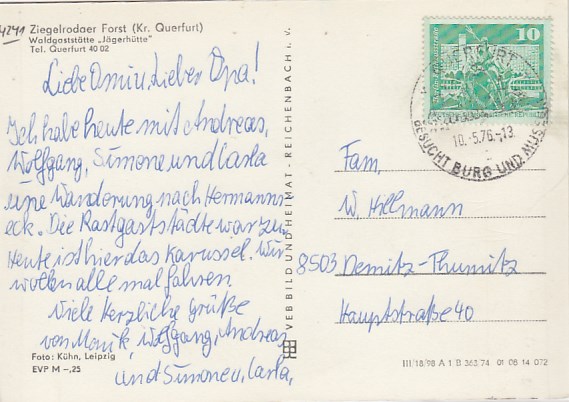 4241
Ziegelrodaer Forst (Kr. Querfurt)
Waldgaststätte „Jägerhütte"
Tel. Querfurt 40 02
Liebe Omi u. Lieber Opa!
Ich habe heute mit Andreas,
Wolfgang, Simone und Carla
eine Wanderung nach Hermanns
eck. Die Rastgaststädte war zu.
Heute ist hier das Karussel. Wir
wollen alle mal fahren.
Viele Herzliche Grüße
von Maik, Wolfgang, Andreas
und Simone u. Carla,
Foto: Kühn, Leipzig
EVP M –,25
VEB BILD UND HEIMAT · REICHENBACH i. V.
10
QUERFURT
10.-5.76.-13
BESUCHT BURG UND MUSEUM
Fam.
W. Hillmann
8503 Demitz-Thumitz
Hauptstraße 40
III/18/98 A 1 B 363/74 01 06 14 072